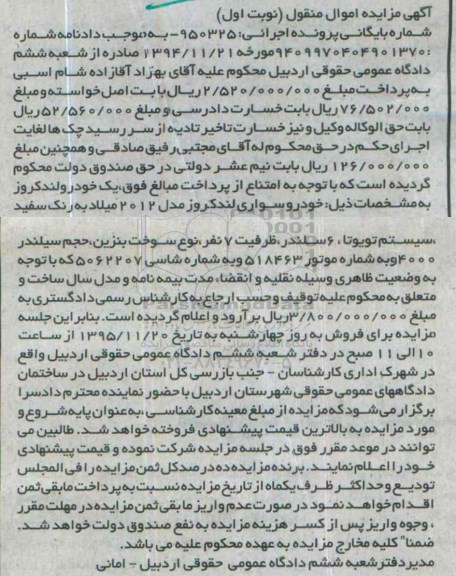 آگهی مزایده اموال منقول (نوبت اول)
شماره بایگانی پرونده اجرائی: ۹۵۰۳۲۵- به موجب دادنامه شماره
:۹۴۰۹۹۷۰۴۰۴۹۰۱۳۷۰ مورخه ۱۳۹۴/۱۱/۲۱ صادره از شعبه ششم
دادگاه عمومی حقوقی اردبیل محکوم علیه آقای بهزاد آقازاده شام اسبی
به پرداخت مبلغ ۲/۵۲۰/۰۰۰/۰۰۰ ریال بابت اصل خواسته و مبلغ
۷۶/۵۰۲/۰۰۰ ریال بابت خسارت دادرسی و مبلغ ۵۲/۵۶۰/۰۰۰ ریال
بابت حق الوکاله وکیل و نیز خسارت تاخیر تادیه از سررسید چک ها لغایت
اجرای حکم در حق محکوم له آقای مجتبی رفیق صادقی و همچنین مبلغ
۱۲۶/۰۰۰/۰۰۰ ریال بابت نیم عشر دولتی در حق صندوق دولت محکوم
گردیده است که با توجه به امتناع از پرداخت مبالغ فوق، یک خودرو لندکروز
به مشخصات ذیل: خودرو سواری لندکروز مدل ۲۰۱۲ میلاد به رنگ سفید
،سیستم تویوتا ، ۶سیلندر، ظرفیت ۷ نفر، نوع سوخت بنزین، حجم سیلندر
۴۰۰۰ و به شماره موتور ۵۱۸۴۶۳ و به شماره شاسی ۵۰۶۲۲۰۷ که با توجه
به وضعیت ظاهری وسیله نقلیه و انقضاء مدت بیمه نامه و مدل سال ساخت و
متعلق به محکوم علیه توقیف و حسب ارجاع به کارشناس رسمی دادگستری به
مبلغ ۳/۸۰۰/۰۰۰/۰۰۰ ریال برآورد و اعلام گردیده است. بنابراین جلسه
مزایده برای فروش به روز چهارشنبه به تاریخ ۱۳۹۵/۱۱/۲۰ از ساعت
۱۰ الی ۱۱ صبح در دفتر شعبه ششم دادگاه عمومی حقوقی اردبیل واقع
در شهرک اداری کارشناسان – جنب بازرسی کل استان اردبیل در ساختمان
دادگاههای عمومی حقوقی شهرستان اردبیل با حضور نماینده محترم دادسرا
برگزار می شود که مزایده از مبلغ معینه کارشناسی، به عنوان پایه شروع و
مورد مزایده به بالاترین قیمت پیشنهادی فروخته خواهد شد. طالبین می
توانند در موعد مقرر فوق در جلسه مزایده شرکت نموده و قیمت پیشنهادی
خود را اعلام نمایند. برنده مزایده ده درصد کل ثمن مزایده را فی المجلس
تودیع و حداکثر ظرف یکماه از تاریخ مزایده نسبت به پرداخت مابقی ثمن
اقدام خواهد نمود در صورت عدم واریز مابقی ثمن مزایده در مهلت مقرر
، وجوه واریز پس از کسر هزینه مزایده به نفع صندوق دولت خواهد شد.
ضمنا" کلیه مخارج مزایده به عهده محکوم علیه می باشد.
مدیر دفتر شعبه ششم دادگاه عمومی حقوقی اردبیل - امانی